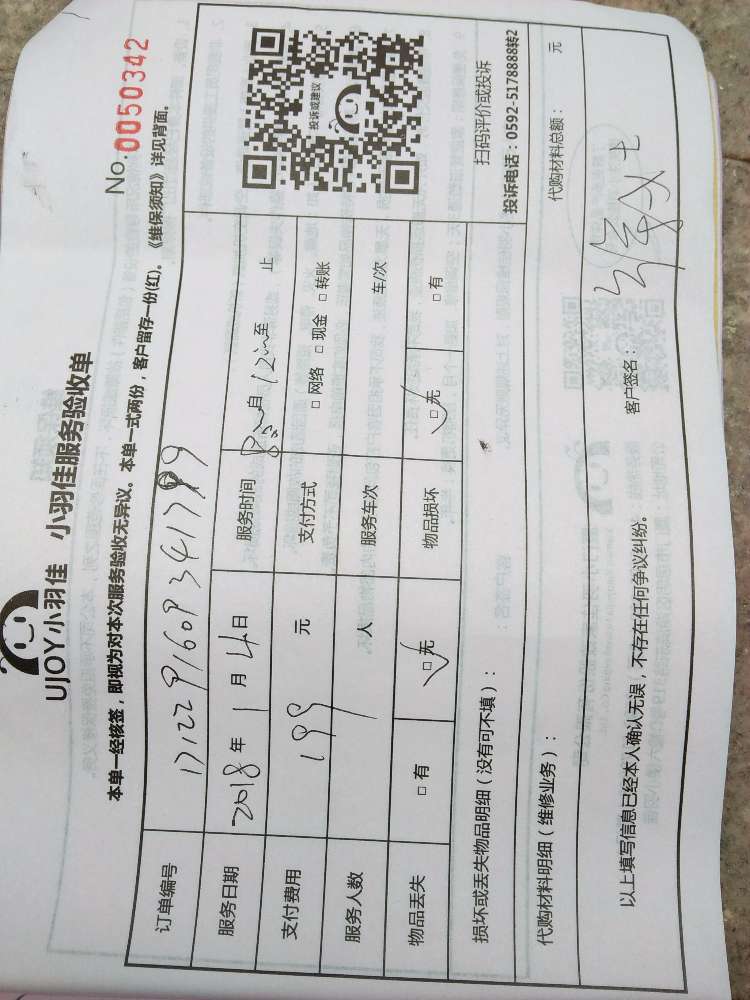 No.0050342
UJOY小羽佳 小羽佳服务验收单
本单一经核签，即视为对本次服务验收无异议。本单一式两份，客户留存一份(红)。《维保须知》详见背面。
订单编号
服务日期 2018年1月4日 服务时间 自 至 止
支付费用 199 元 支付方式 □网络 □现金 □转账
服务人数 人 服务车次 车/次
物品丢失 □有 □无 物品损坏 □无 □有
投诉或建议
损坏或丢失物品明细（没有可不填）：
扫码评价或投诉
投诉电话：0592-5178888转2
代购材料明细（维修业务）： 代购材料总额： 元
以上填写信息已经本人确认无误，不存在任何争议纠纷。 客户签名：